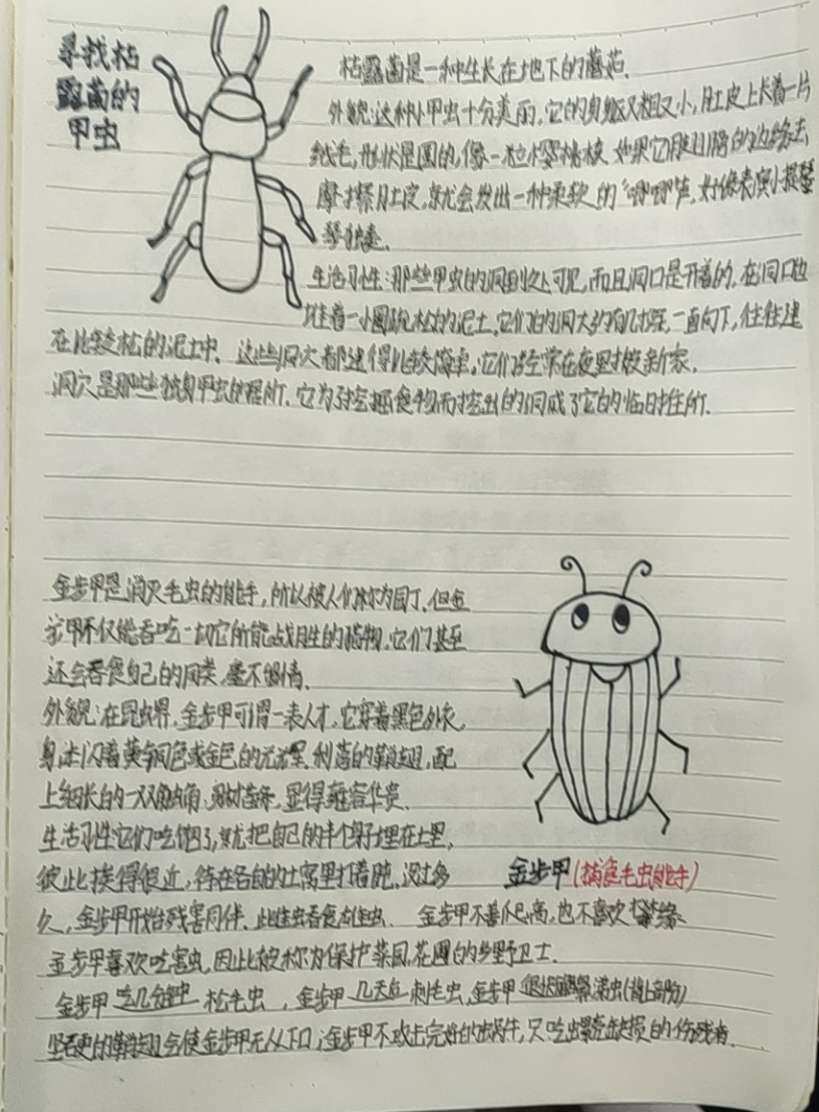 寻找枯
露菌的
甲虫
枯露菌是一种生长在地下的蘑菇.
外貌:这种小甲虫十分美丽.它的身躯又粗又小,肚皮上长着一片
绒毛,形状是圆的,像一粒小樱桃核.如果它用翅膀的边缘去
摩擦肚皮,就会发出一种柔软的“唧唧”声,好像表演小提琴
琴独奏.
生活习性:那些甲虫的洞到处可见,而且洞口是开着的.在洞口边
堆着一小圈疏松的泥土.它们的洞大约有几寸深,一直向下,往往建
在比较松的泥土中.这些洞穴都建得比较简单,它们经常在夜里搬新家.
洞穴是那些独身甲虫的居所.它为了挖掘食物而挖出的洞成了它的临时住所.
金步甲是消灭毛虫的能手,所以被人们称为园丁.但金
步甲不仅能吞吃一切它所能战胜的猎物.它们甚至
还会吞食自己的同类,毫不留情.
外貌:在昆虫界.金步甲可谓一表人才,它穿着黑色外衣,
身体闪着黄铜色或金色的光泽.利落的鞘翅,配
上细长的一双触角,显得雍容华贵.
生活习性:它们吃饱了,就把自己的半个身子埋在土里,
彼此挨得很近,待在各自的土窝里打着盹.没过多
久,金步甲开始残害同伴.此雄虫吞食雄虫. 金步甲不善爬高,也不喜欢攀缘
金步甲喜欢吃害虫,因此被称为保护菜园,花圃的乡野卫士.
金步甲吃几分钟松毛虫,金步甲几天后刺毛虫,金步甲
坚硬的鞘翅会使金步甲无从下口;金步甲不攻击完好的蜗牛,只吃出壳缺损的伤残者.
金步甲(捕食毛虫能手)